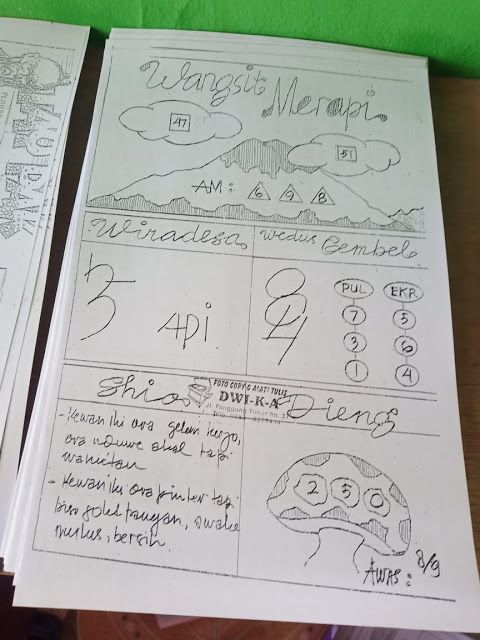 Wangsit Merapi
47
51
AM: 6 9 8
Wiradesa
Wedus Gembel
Api
8
4
PUL EKR
7 5
3 6
1 4
Shio
FOTO COPY & ALAT TULIS
DWI-K-A
Jl. Panggung Timur No.
Dieng
- Kewan iki ora gelem kerjo,
ora nduwe akal tapi
- Kewan iki ora pinter tapi
mulus, bersih.
2 5 0
AWAS: 8/9